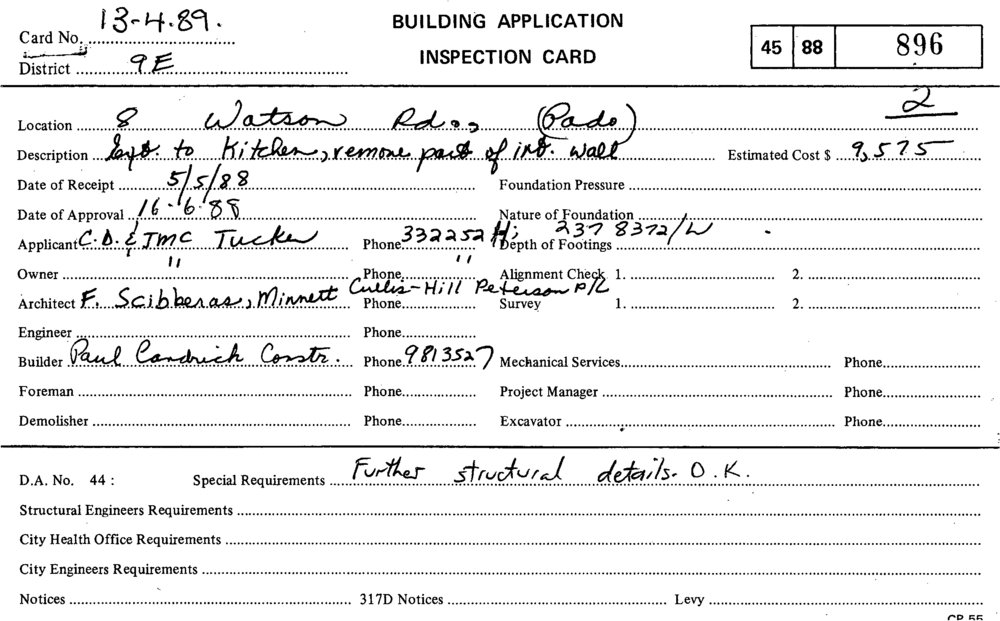 13-4-89.
BUILDING APPLICATION
Card No.
45 88 896
INSPECTION CARD
District 9E
2
Location 8 Watson Rd., (Pado)
Description Ext. to Kitchen, remove part of int. wall Estimated Cost $ 9,575
Date of Receipt 5/5/88 Foundation Pressure
Date of Approval 16.6.88 Nature of Foundation
Applicant C.D. & JMC Tucker Phone 332252 H; 237 8372/W Depth of Footings
Owner " Phone " Alignment Check 1. 2.
Architect F. Scibberas, Minnett Cullis-Hill Peterson P/L Phone Survey 1. 2.
Engineer Phone
Builder Paul Candrick Constr. Phone 9813527 Mechanical Services Phone
Foreman Phone Project Manager Phone
Demolisher Phone Excavator Phone
D.A. No. 44 : Special Requirements Further structural details. O.K.
Structural Engineers Requirements
City Health Office Requirements
City Engineers Requirements
Notices 317D Notices Levy
CP 55